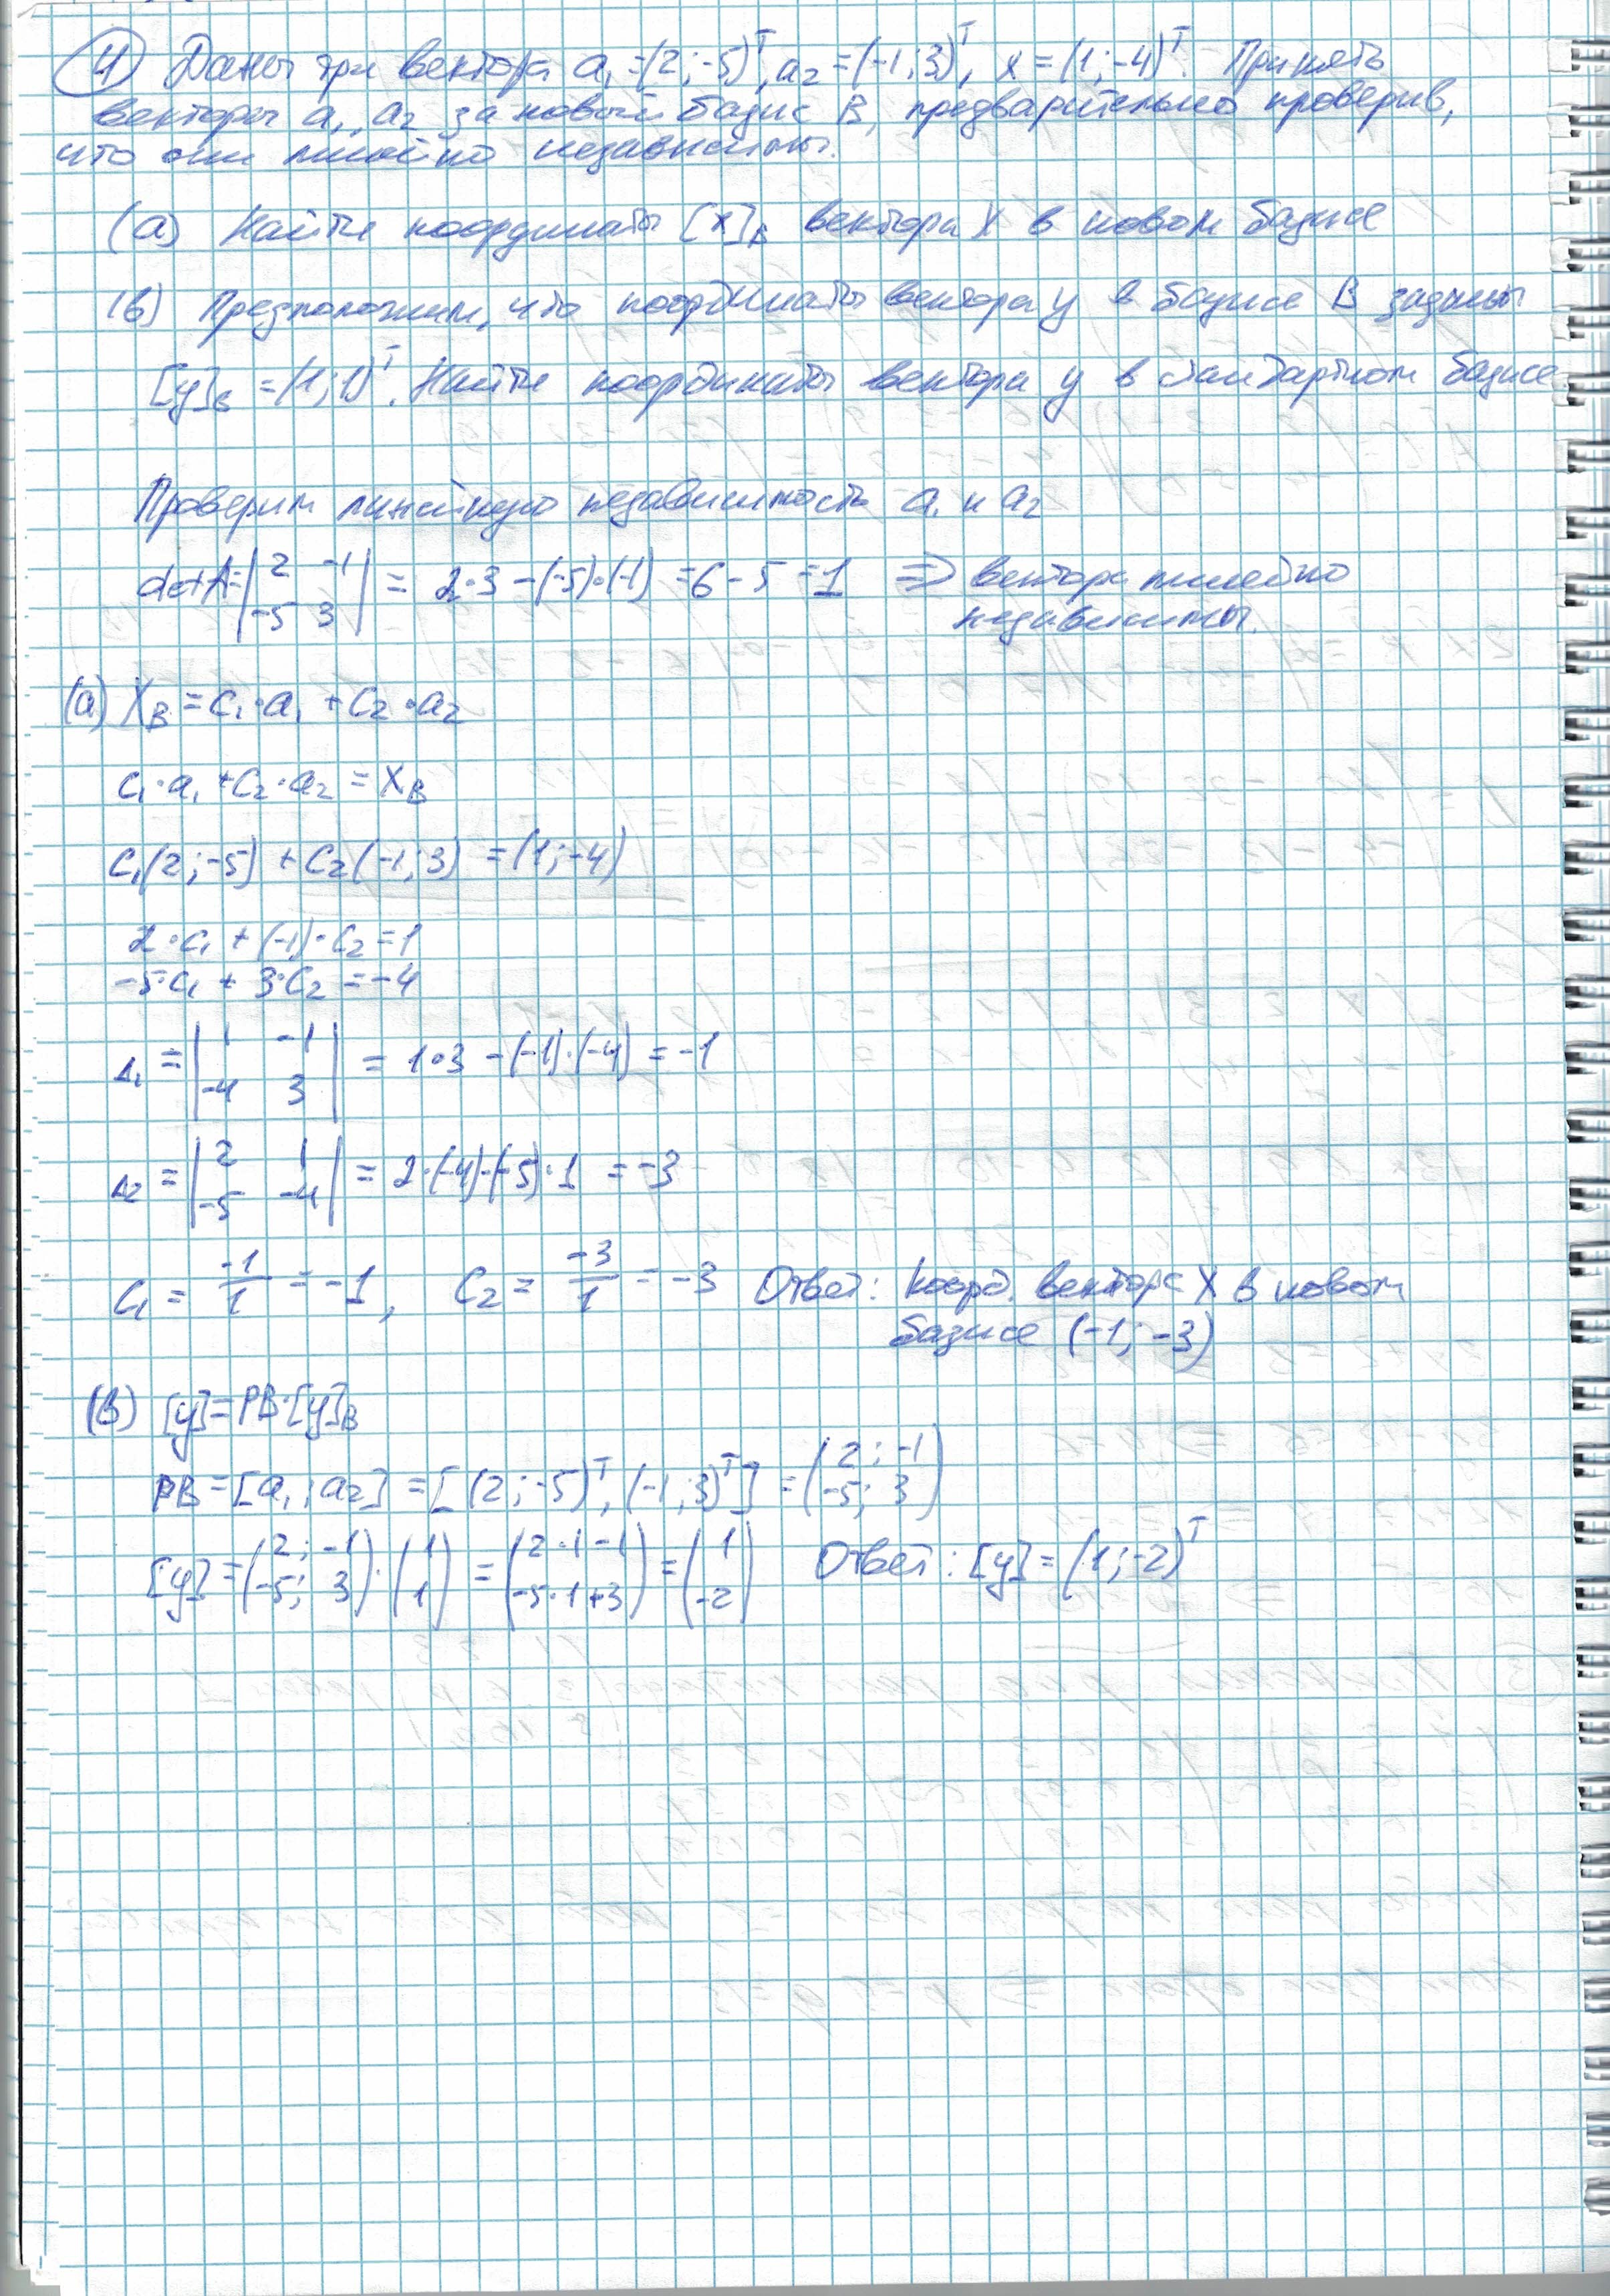 4 Даны три вектора a₁=(2;-5)ᵀ, a₂=(-1;3)ᵀ, x=(1;-4)ᵀ. Принять
векторы a₁, a₂ за новый базис B, предварительно проверив,
что они линейно независимы.
(a) Найти координаты [x]_B вектора X в новом базисе
(в) Предположим, что координаты вектора y в базисе B заданы
[y]_B=(1;1)ᵀ. Найти координаты вектора y в стандартном базисе.
Проверим линейную независимость a₁ и a₂
det A = |2 -1; -5 3| = 2·3-(-5)·(-1) = 6-5 = 1 => вектора линейно
независимы.
(a) X_B = c₁·a₁ + c₂·a₂
c₁·a₁ + c₂·a₂ = X_B
c₁(2;-5) + c₂(-1;3) = (1;-4)
2·c₁ + (-1)·c₂ = 1
-5·c₁ + 3·c₂ = -4
Δ₁ = |1 -1; -4 3| = 1·3-(-1)·(-4) = -1
Δ₂ = |2 1; -5 -4| = 2·(-4)-(-5)·1 = -3
c₁ = -1/1 = -1, c₂ = -3/1 = -3 Ответ: коорд. вектора X в новом
базисе (-1; -3)
(в) [y]=PB·[y]_B
PB=[a₁; a₂] = [(2;-5)ᵀ, (-1;3)ᵀ] = (2; -1 / -5; 3)
[y] = (2; -1 / -5; 3)·(1 / 1) = (2·1-1 / -5·1+3) = (1 / -2) Ответ: [y] = (1;-2)ᵀ